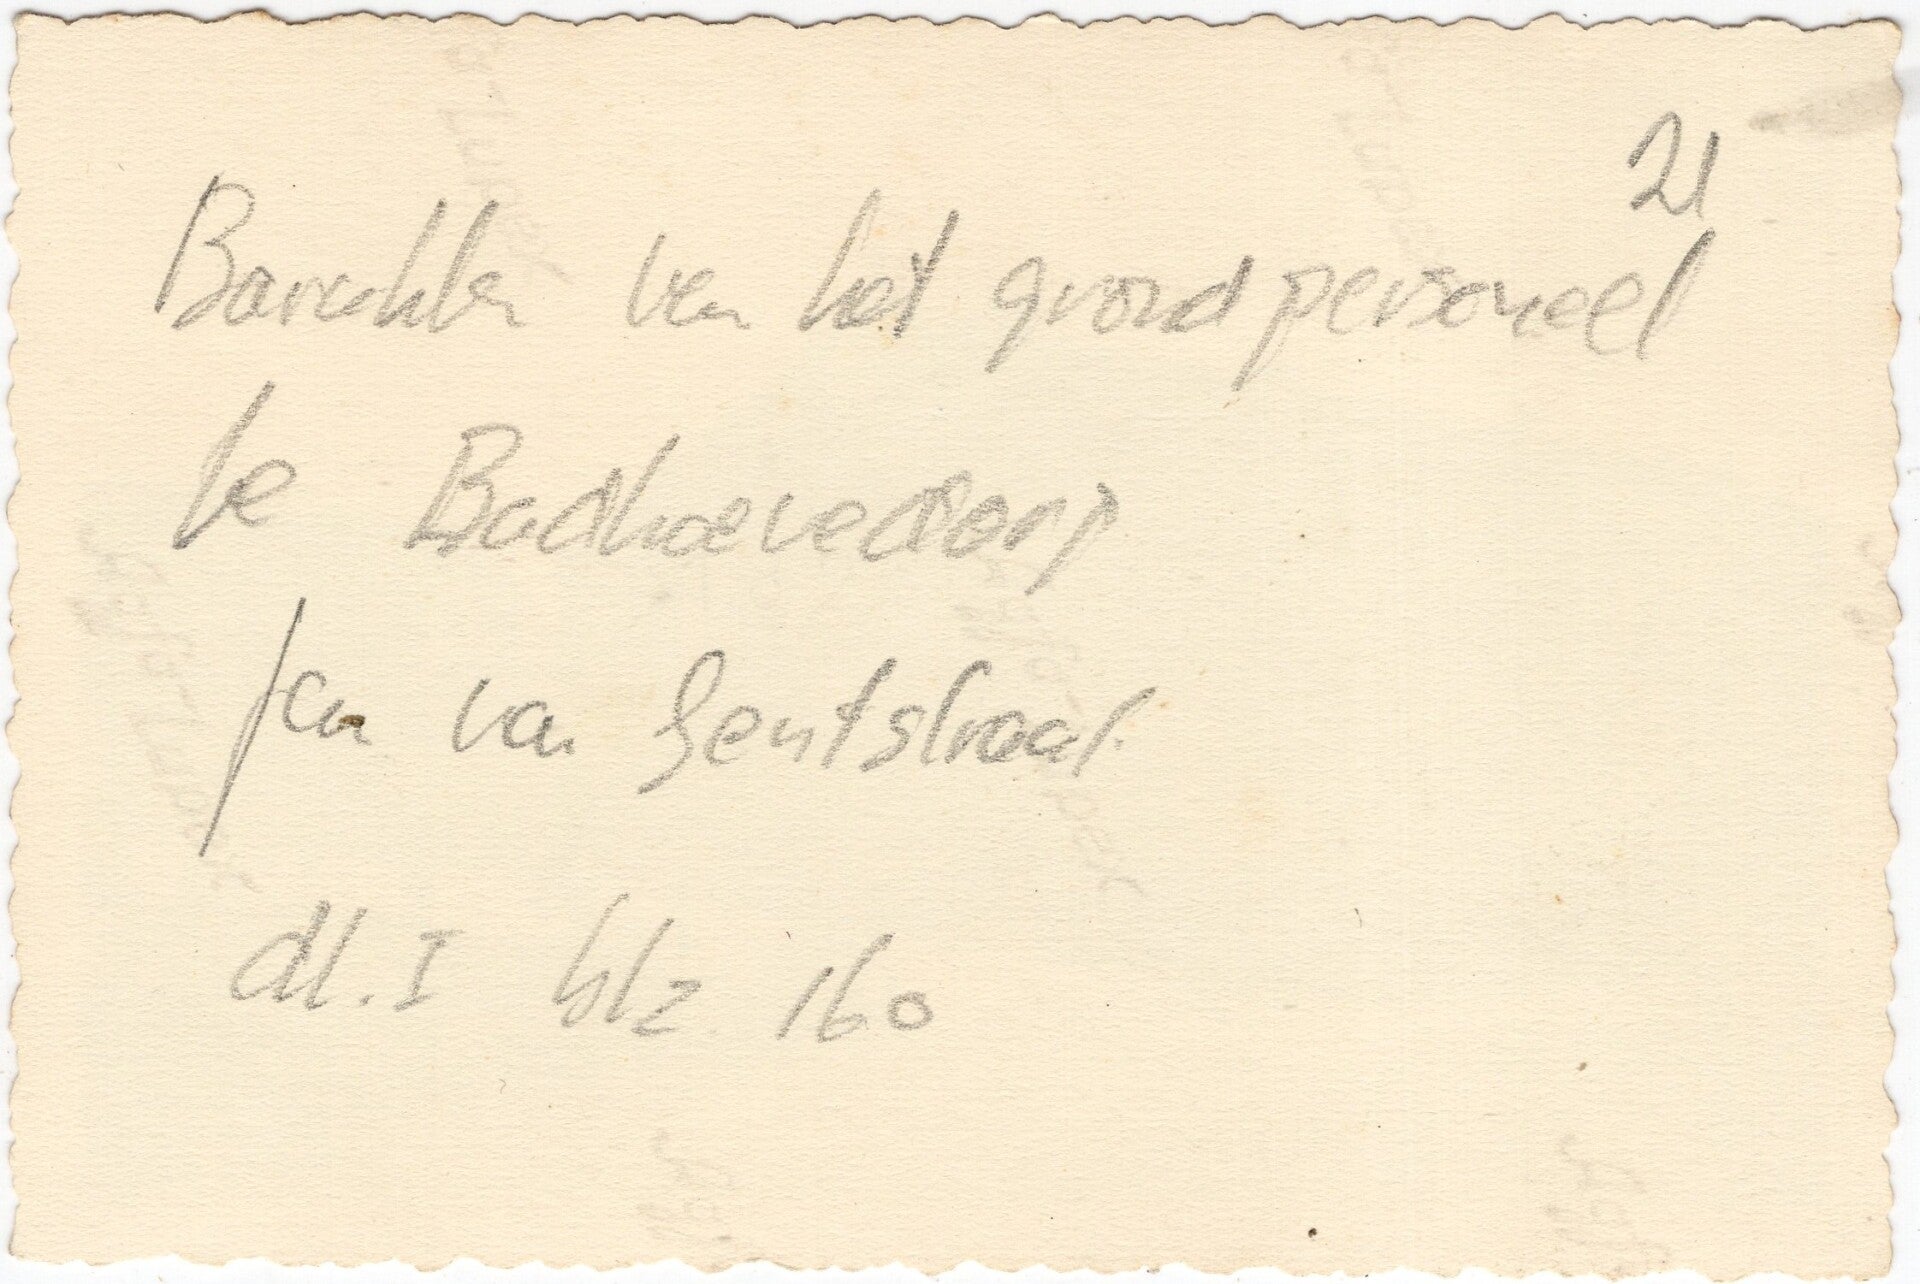 21
Barakken van het grondpersoneel
te Badhoevedorp
Jan van Gentstraat.
dl. I blz. 160